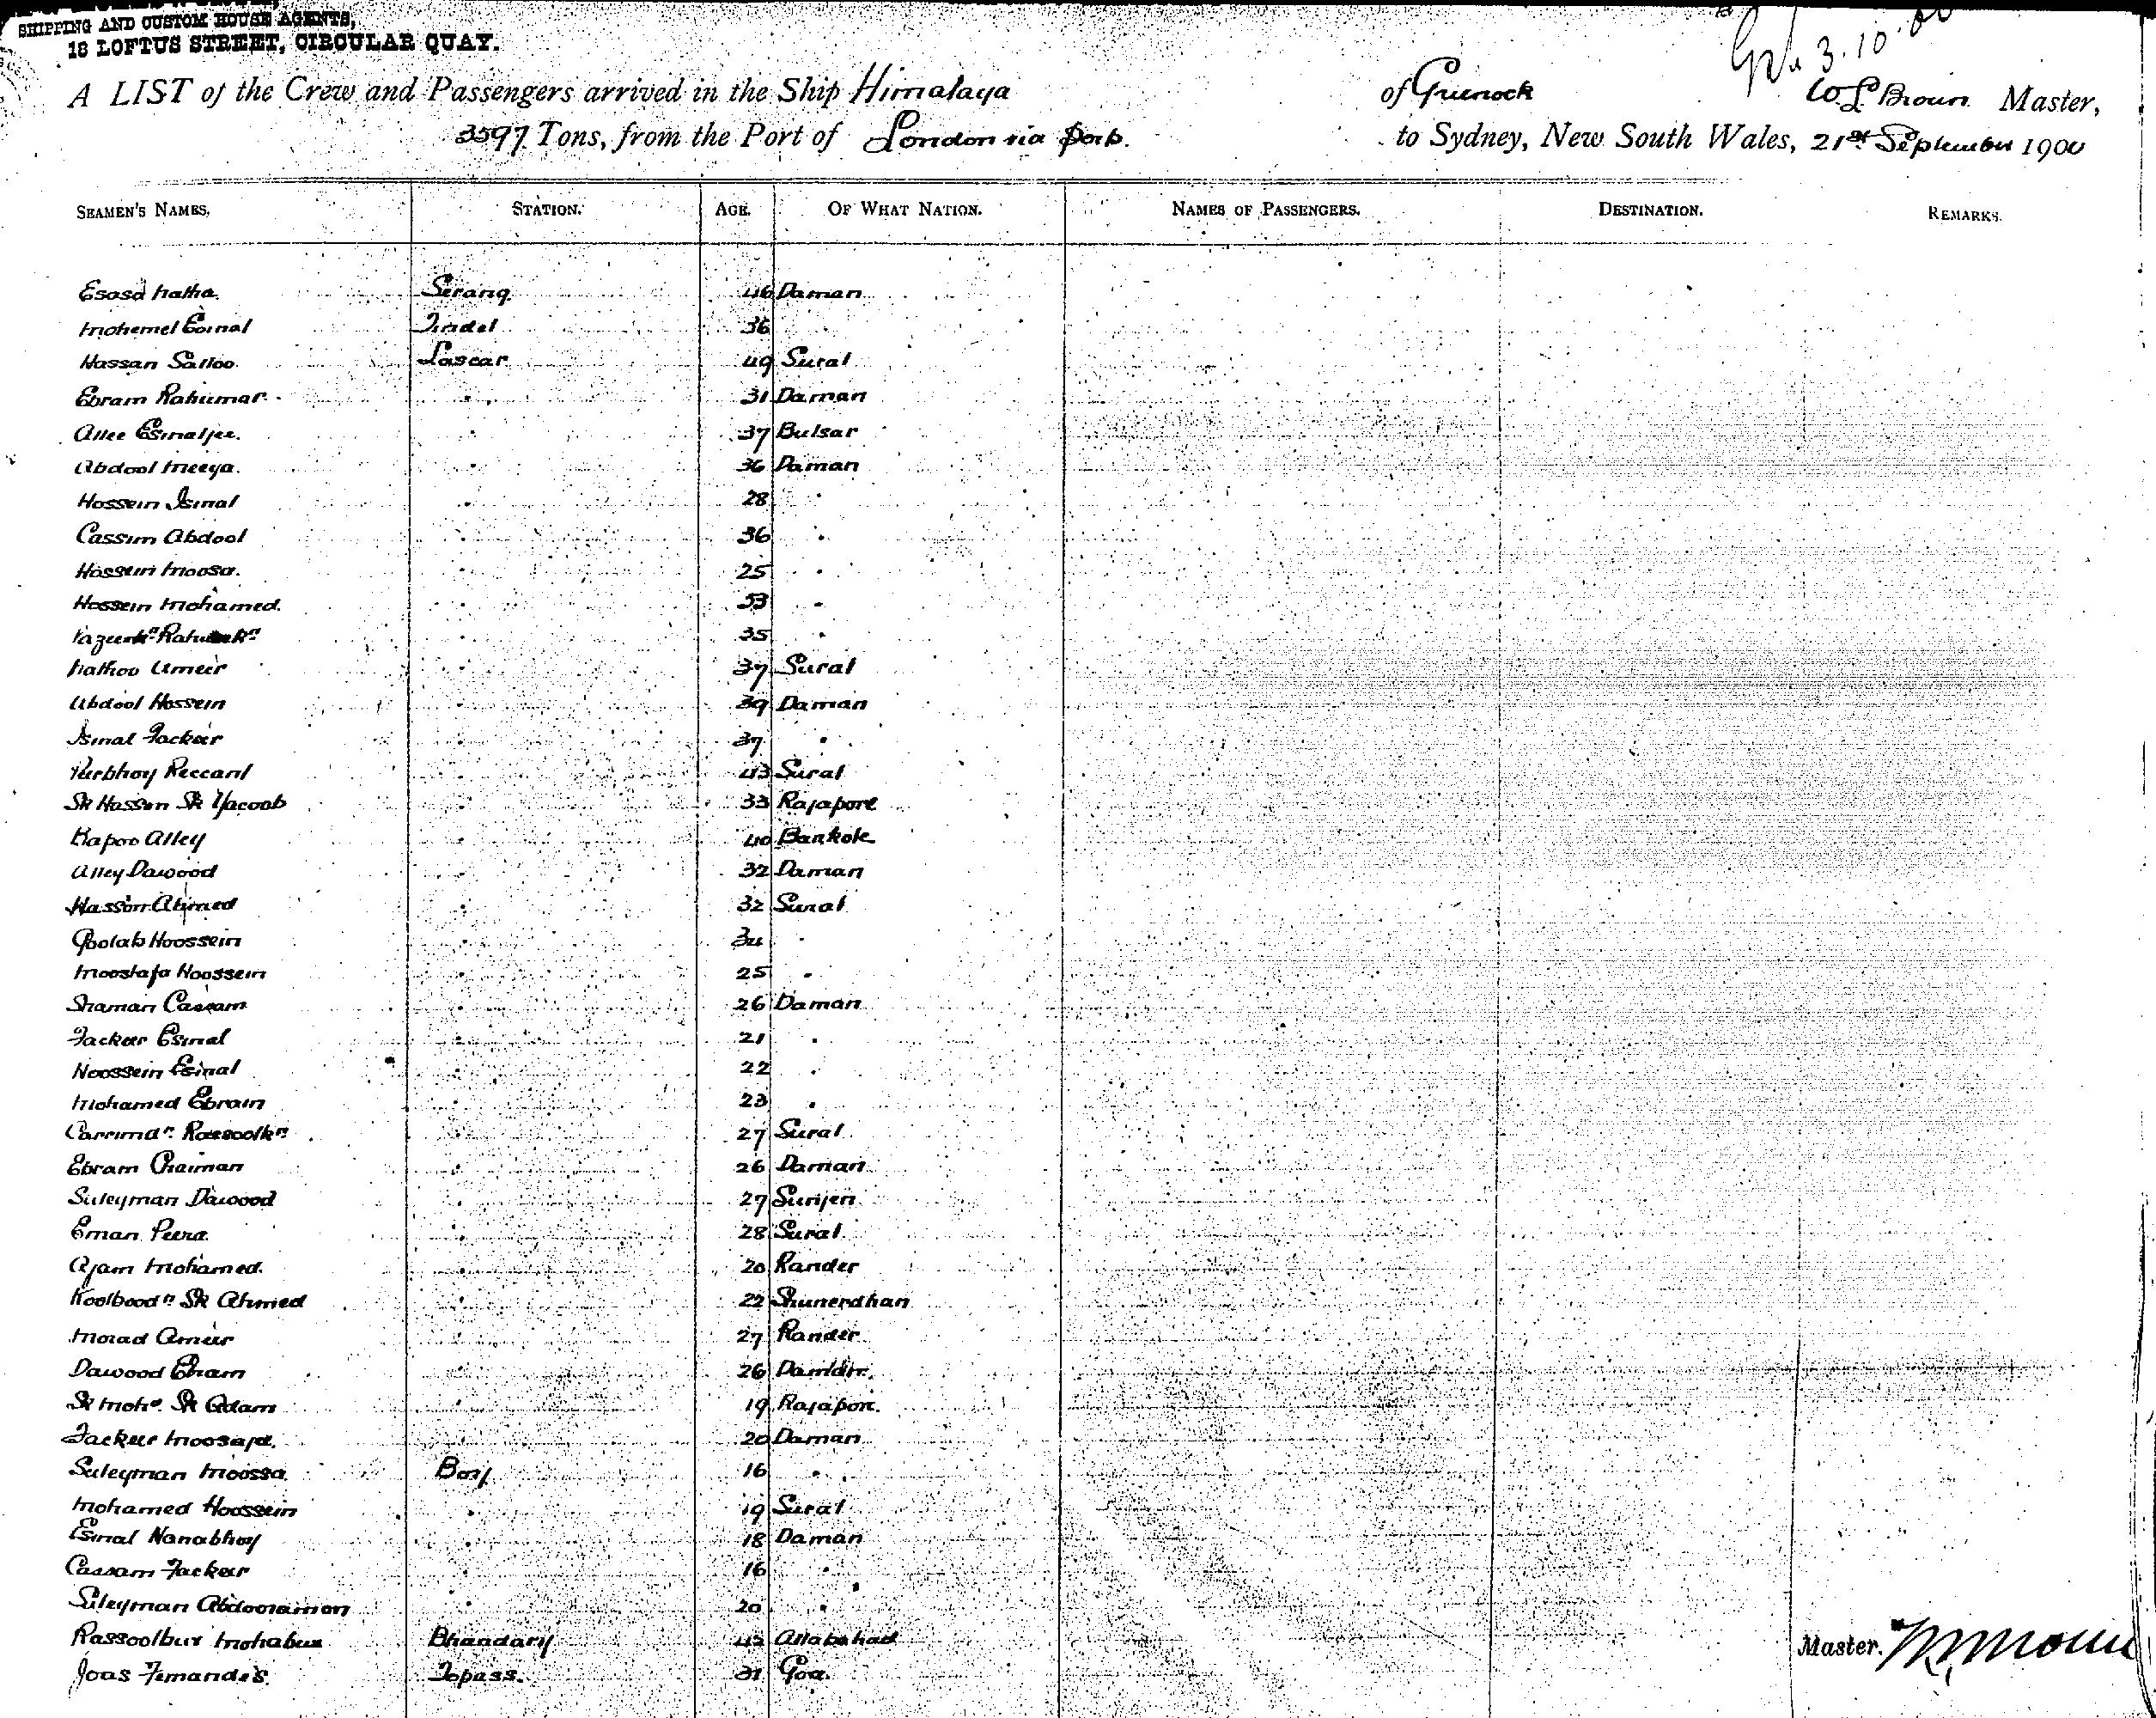 SHIPPING AND CUSTOM HOUSE AGENTS,
18 LOFTUS STREET, CIRCULAR QUAY.
3.10.00
A LIST of the Crew and Passengers arrived in the Ship Himalaya of Greenock Brown Master,
3597 Tons, from the Port of London via Ports. to Sydney, New South Wales, 21st September 1900
SEAMEN'S NAMES. STATION. AGE. OF WHAT NATION. NAMES OF PASSENGERS. DESTINATION. REMARKS.
Serang 46 Daman
Tindel 36
Hassan Lascar 49 Surat
Ebram 31 Daman
37 Bulsar
Abdool Meeya. 36 Daman
Hossein Ismal 28
Cassim Abdool 36
Hossein Moosa. 25
Hossein Mohamed. 53
35
Nathoo Umeer 37 Surat
Abdool Hossein 39 Daman
Ismal Fackeer 37
43 Surat
Sk Hassan Sk Yacoob 33 Rajapore
Bapoo Alley 40 Bankote
Alley Dawood 32 Daman
Hasson Ahmed 32 Surat
Goolab Hoossein 34
Moostafa Hoossein 25
Shaman Cassam 26 Daman
Fackeer Esmal 21
Hoossein Esmal 22
Mohamed Ebram 23
27 Surat
Ebram 26 Daman
Suleyman Dawood 27
Eman Peera 28 Surat
Ajam Mohamed. 20 Rander
Sk Ahmed 22
Morad Ameer 27 Rander
Dawood Ebram 26
Sk Mohd. Sk Adam 19 Rajapore.
Fackeer 20 Daman
Suleyman Moossa. Boy 16
Mohamed Hoossein 19 Surat
Esmal Nanabhoy 18 Daman
Cassam Fackeer 16
Suleyman 20
Bhandary Allabahad
Joas Fernandes. Topass. Goa.
Master.